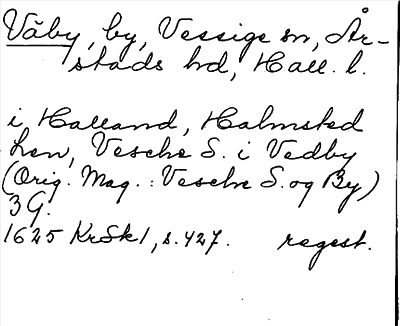 Våby, by, Vessige sn, År-
stads hd, Hall. l.
i Halland, Halmsted
Len, Vesche S. i Vedby
(Orig. Mag.: Vesche S. og By)
3 G.
1625 KrSk1, s. 427. regest.